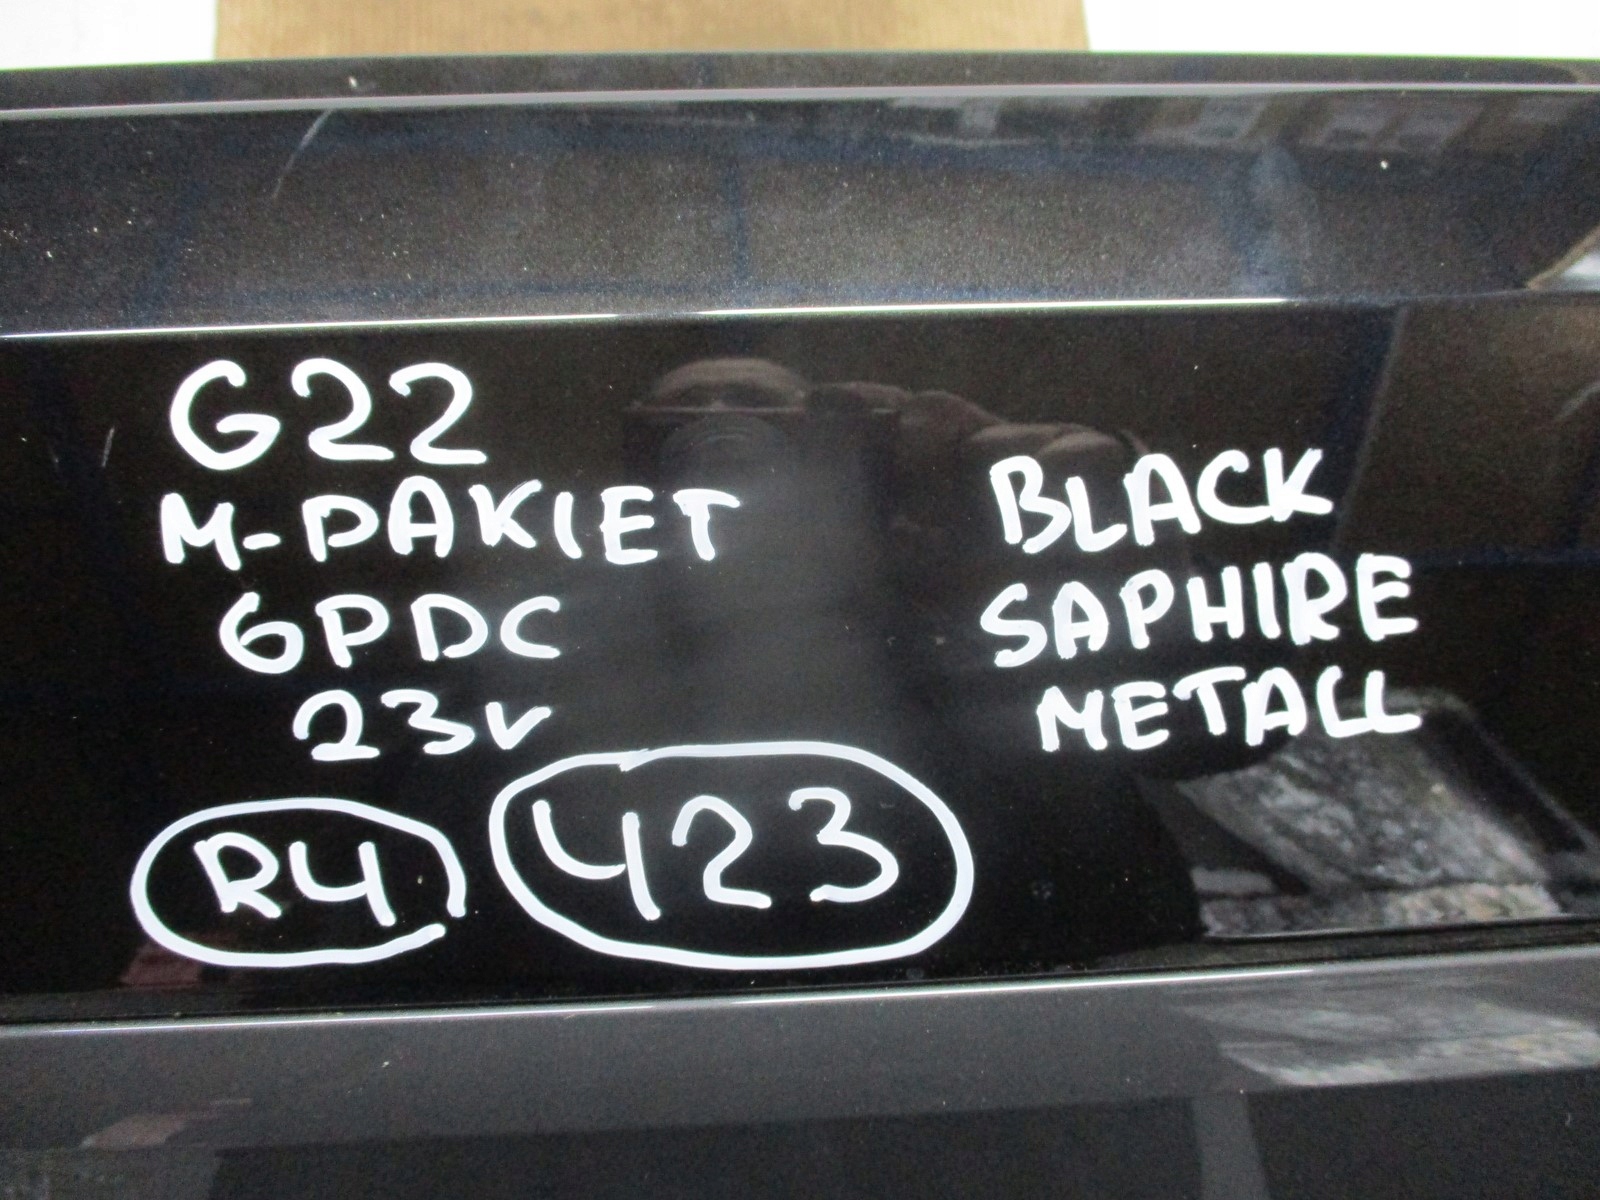 G22
M-PAKIET
6PDC
23v
R4
423
BLACK
SAPHIRE
METALL